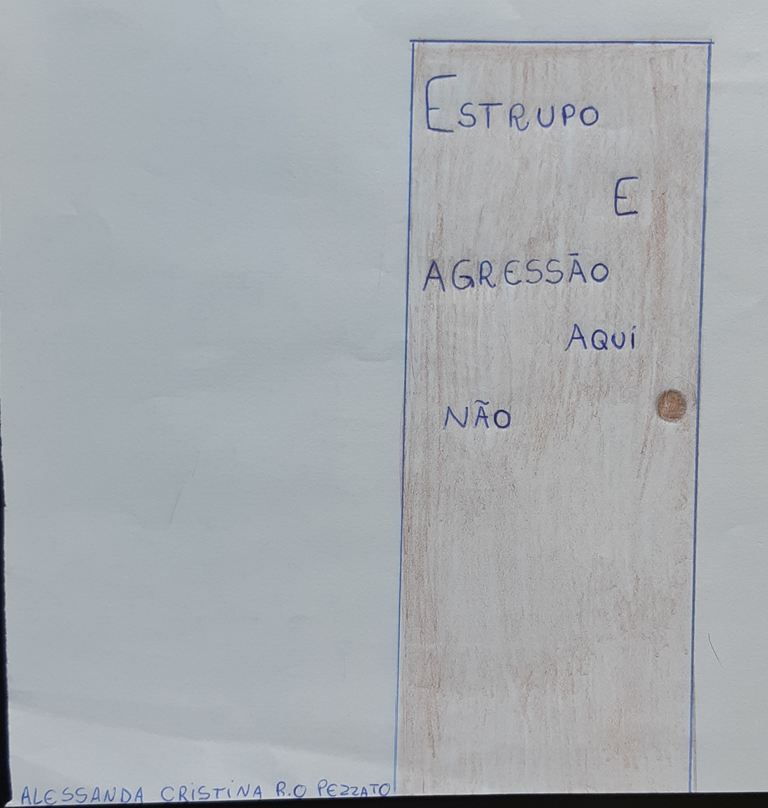 ESTRUPO
E
AGRESSÃO
AQUI
NÃO
ALESSANDA CRISTINA R.O PEZZATO